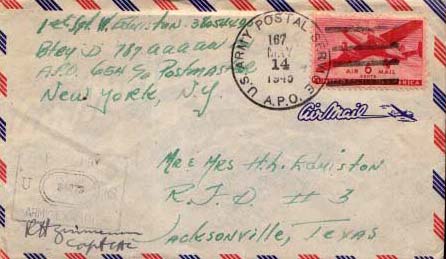 1st Sgt. W. Edmiston
Btry D 787 AAA AW BN
A.P.O. 654 c/o Postmaster
New York, N.Y.
U.S. ARMY POSTAL SERVICE
167
MAY
14
1945
A.P.O.
AIR MAIL
6
CENTS
Air Mail
Mr & Mrs H.L. Edmiston
R.F.D. # 3
Jacksonville, Texas
U
Capt